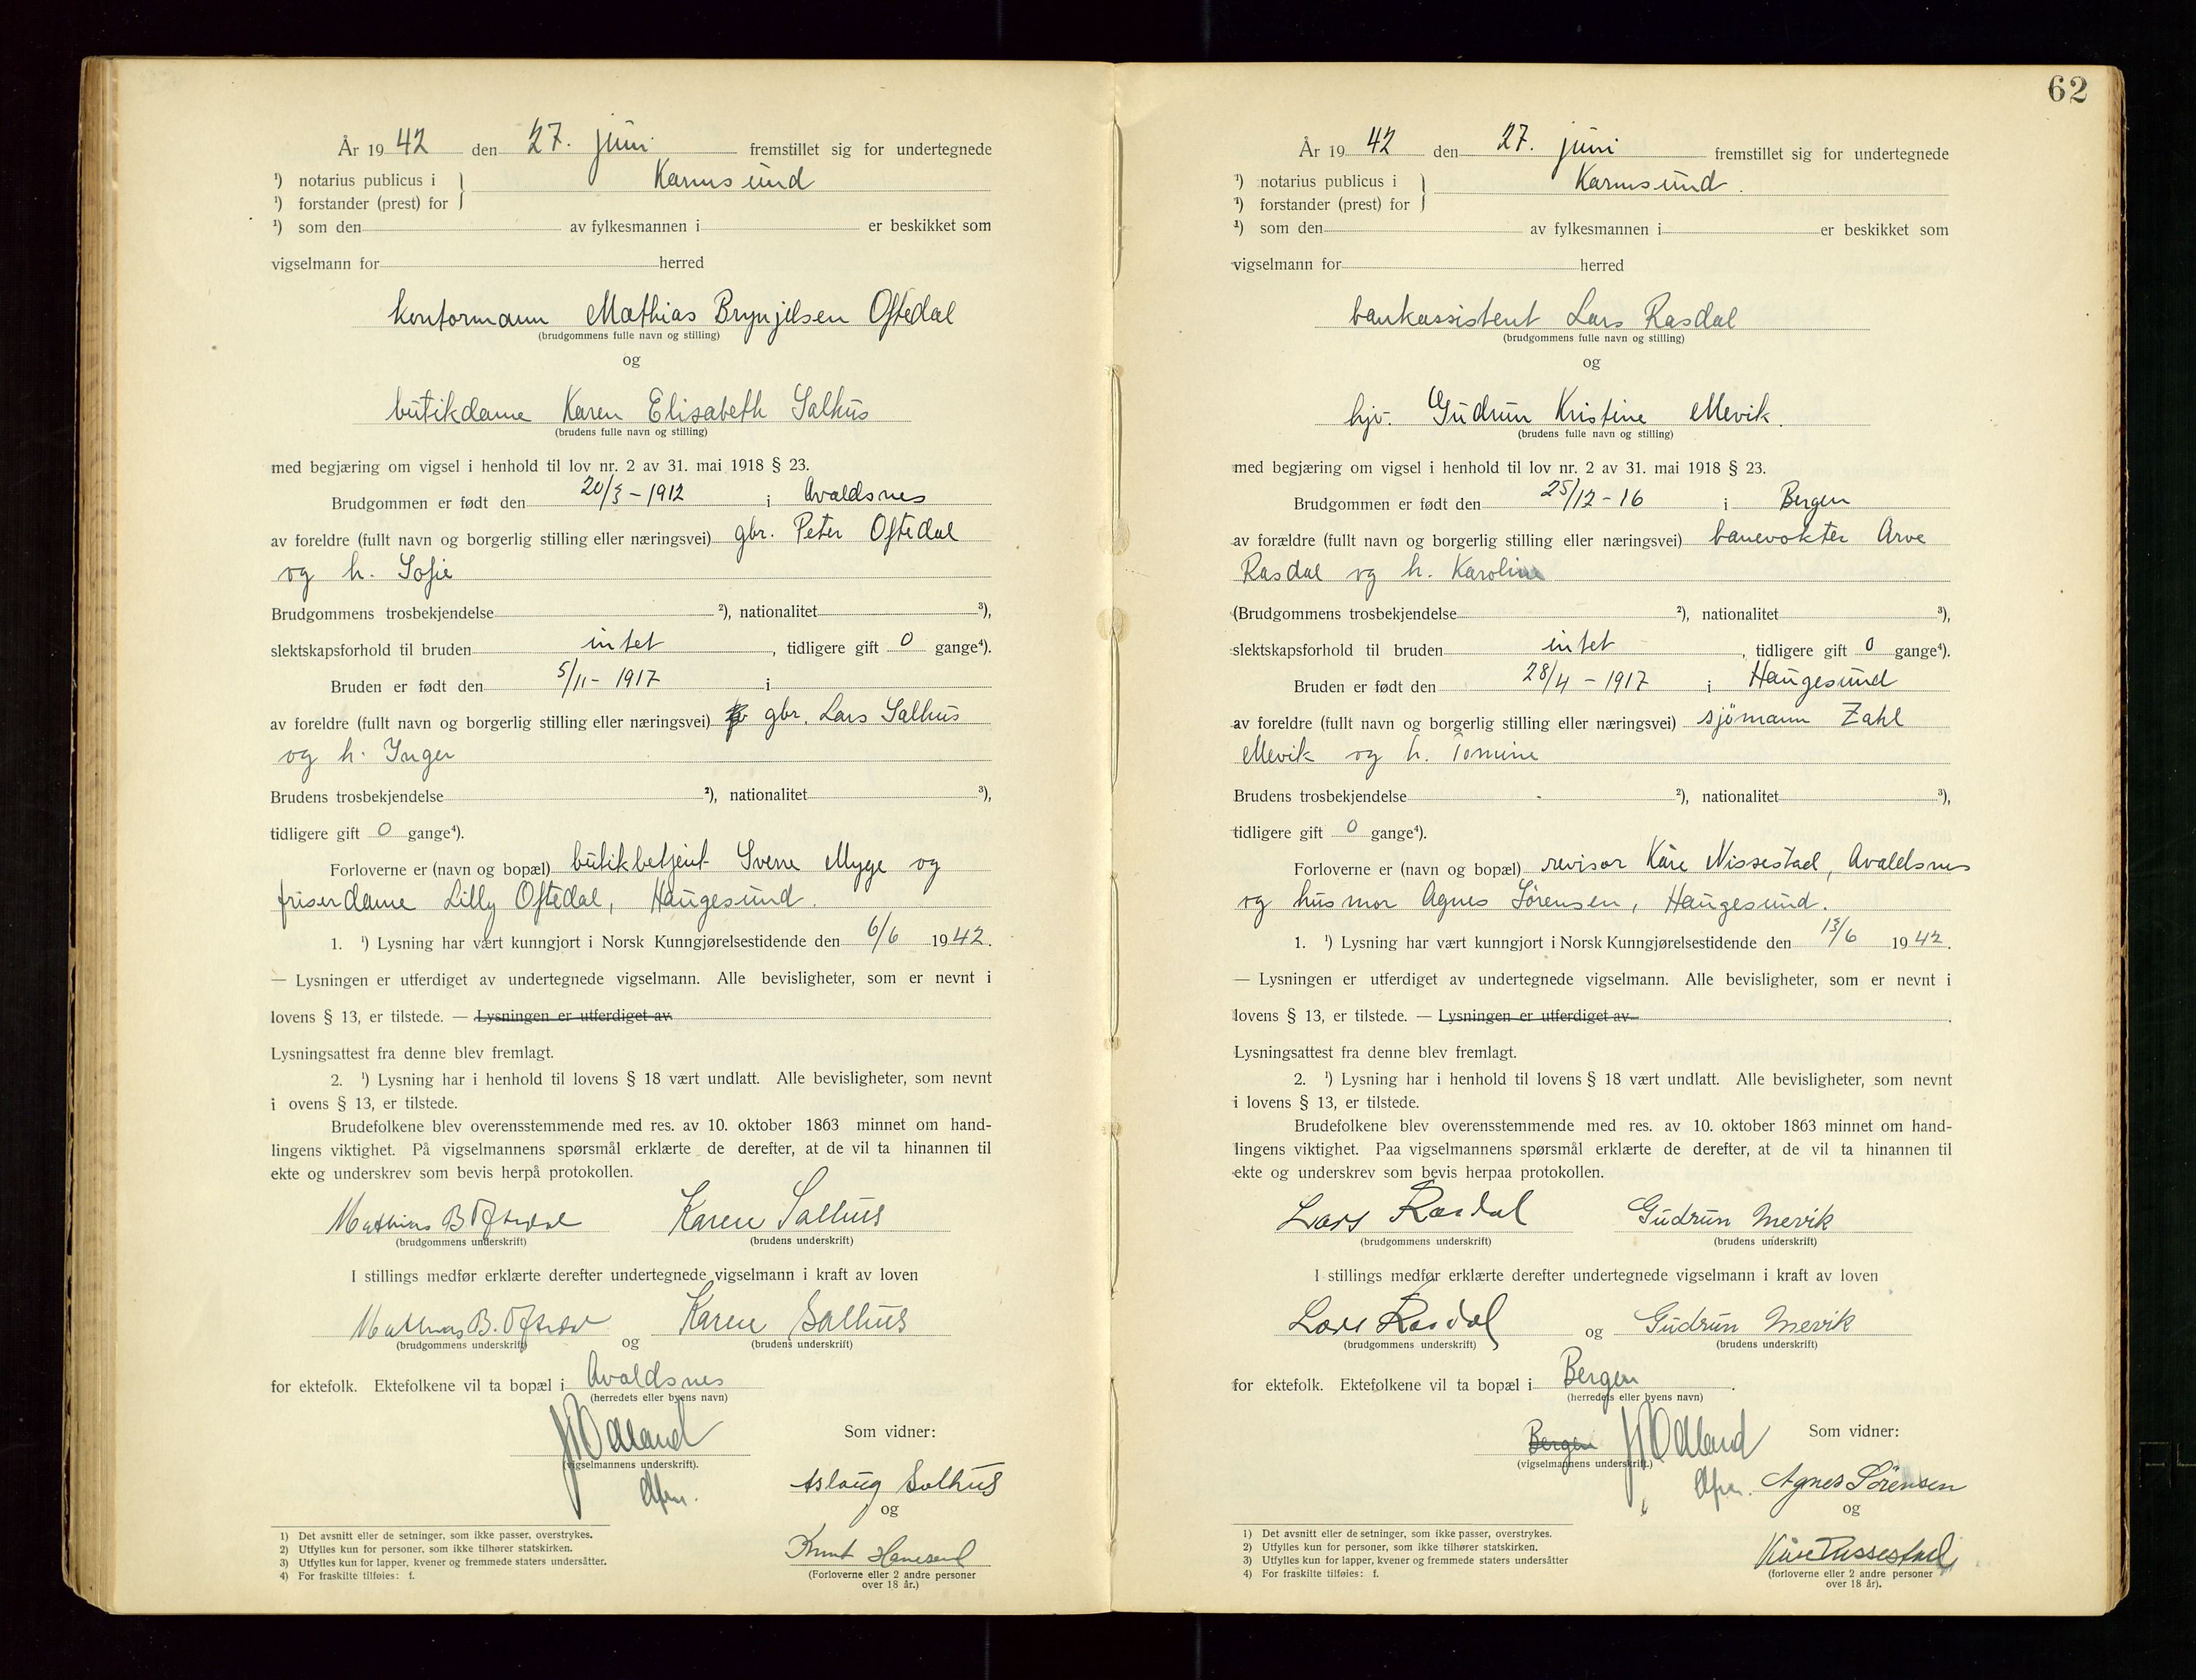 År 1942 den 27. juni fremstillet sig for undertegnede
¹) notarius publicus i } Karmsund
¹) forstander (prest) for
¹) som den av fylkesmannen i er beskikket som
vigselmann for herred
kontormann Mathias Brynjelsen Oftedal
(brudgommens fulle navn og stilling)
og
butikdame Karen Elisabeth Salhus
(brudens fulle navn og stilling)
med begjæring om vigsel i henhold til lov nr. 2 av 31. mai 1918 § 23.
Brudgommen er født den 20/3 - 1912 i Avaldsnes
av foreldre (fullt navn og borgerlig stilling eller næringsvei) gbr. Peter Oftedal
og h. Sofie
Brudgommens trosbekjendelse ²), nationalitet ³),
slektskapsforhold til bruden intet, tidligere gift 0 gange⁴).
Bruden er født den 5/11 - 1917 i
av foreldre (fullt navn og borgerlig stilling eller næringsvei) gbr. Lars Salhus
og h. Inger
Brudens trosbekjendelse ²), nationalitet ³),
tidligere gift 0 gange⁴).
Forloverne er (navn og bopæl) butikbetjent Sverre Myge og
friserdame Lilly Oftedal, Haugesund.
1. ¹) Lysning har vært kunngjort i Norsk Kunngjørelsestidende den 6/6 1942.
— Lysningen er utferdiget av undertegnede vigselmann. Alle bevisligheter, som er nevnt i
lovens § 13, er tilstede. — Lysningen er utferdiget av
Lysningsattest fra denne blev fremlagt.
2. ¹) Lysning har i henhold til lovens § 18 vært undlatt. Alle bevisligheter, som nevnt
i ovens § 13, er tilstede.
Brudefolkene blev overensstemmende med res. av 10. oktober 1863 minnet om hand-
lingens viktighet. På vigselmannens spørsmål erklærte de derefter, at de vil ta hinannen til
ekte og underskrev som bevis herpå protokollen.
Mathias B Oftedal Karen Salhus
(brudgommens underskrift) (brudens underskrift)
I stillings medfør erklærte derefter undertegnede vigselmann i kraft av loven
Mathias B. Oftedal og Karen Salhus
(brudgommens underskrift) (brudens underskrift)
for ektefolk. Ektefolkene vil ta bopæl i Avaldsnes
(herredets eller byens navn)
Ødland Som vidner:
(vigselmannens underskrift).
Aslaug Salhus
og
Knut
(Forloverne eller 2 andre personer
over 18 år.)
1) Det avsnitt eller de setninger, som ikke passer, overstrykes.
2) Utfylles kun for personer, som ikke tilhører statskirken.
3) Utfylles kun for lapper, kvener og fremmede staters undersåtter.
4) For fraskilte tilføies: f.
62
År 1942 den 27. juni fremstillet sig for undertegnede
¹) notarius publicus i } Karmsund.
¹) forstander (prest) for
¹) som den av fylkesmannen i er beskikket som
vigselmann for herred
bankassistent Lars Rasdal
(brudgommens fulle navn og stilling)
og
hjv. Gudrun Kristine Mevik.
(brudens fulle navn og stilling)
med begjæring om vigsel i henhold til lov nr. 2 av 31. mai 1918 § 23.
Brudgommen er født den 25/12 - 16 i Bergen
av forældre (fullt navn og borgerlig stilling eller næringsvei) banevokter Arve
Rasdal og h. Karoline
(Brudgommens trosbekjendelse ²), nationalitet ³),
slektskapsforhold til bruden intet, tidligere gift 0 gange⁴).
Bruden er født den 28/4 - 1917 i Haugesund
av foreldre (fullt navn og borgerlig stilling eller næringsvei) sjömann Zahl
Mevik og h. Tomine
Brudens trosbekjendelse ²), nationalitet ³),
tidligere gift 0 gange⁴).
Forloverne er (navn og bopæl) revisor Kåre Nissestad, Avaldsnes
og husmor Agnes Sørensen, Haugesund.
1. ¹) Lysning har vært kunngjort i Norsk Kunngjørelsestidende den 13/6 1942.
— Lysningen er utferdiget av undertegnede vigselmann. Alle bevisligheter, som er nevnt i
lovens § 13, er tilstede. — Lysningen er utferdiget av .
Lysningsattest fra denne blev fremlagt.
2. ¹) Lysning har i henhold til lovens § 18 vært undlatt. Alle bevisligheter, som nevnt
i lovens § 13, er tilstede.
Brudefolkene blev overensstemmende med res. av 10. oktober 1863 minnet om hand-
lingens viktighet. Paa vigselmannens spørsmål erklærte de derefter, at de vil ta hinannen til
ekte og underskrev som bevis herpaa protokollen.
Lars Rasdal Gudrun Mevik
(brudgommens underskrift) (brudens underskrift)
I stillings medfør erklærte derefter undertegnede vigselmann i kraft av loven
Lars Rasdal og Gudrun Mevik
(brudgommens underskrift) (brudens underskrift)
for ektefolk. Ektefolkene vil ta bopæl i Bergen.
(herredets eller byens navn)
Bergen Ødland Som vidner:
(vigselmannens underskrift.)
Agnes Sørensen
og
Kåre Nissestad
(forloverne eller 2 andre personer
over 18 år).
1) Det avsnitt eller de setninger, som ikke passer, overstrykes.
2) Utfylles kun for personer, som ikke tilhører statskirken.
3) Utfylles kun for lapper, kvener og fremmede staters undersåtter
4) For fraskilte tilføies: f.